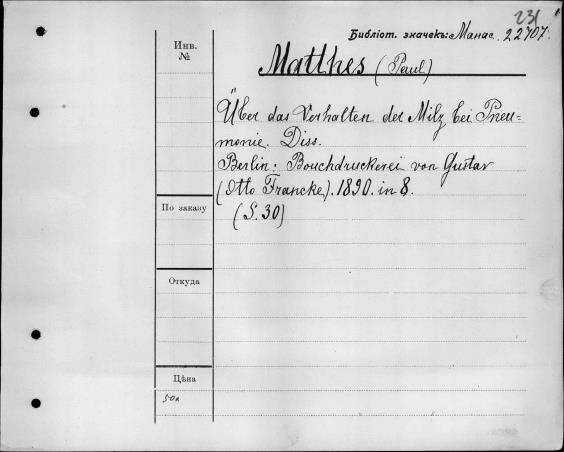 231
Библіот. значекъ: Манас. 22707.
Инв.
№
Matthes (Paul)
Über das Verhalten der Milz bei Pneu=
monie. Diss.
Berlin: Bouchdruckerei von Gustav
(Otto Francke). 1890. in 8.
По заказу
(S. 30)
Откуда
Цѣна
50к